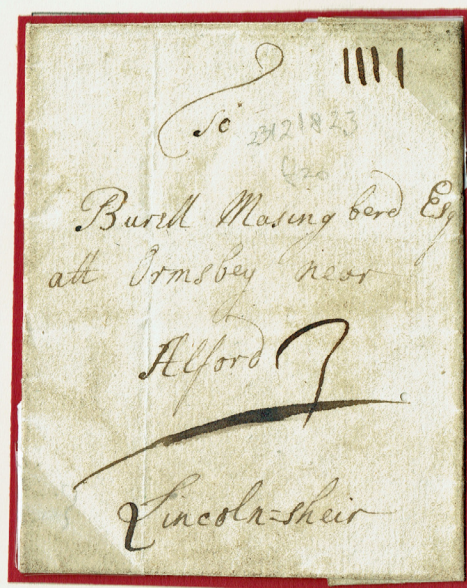 To
Burell Masingberd Esq
att Ormsbey near
Alford
Lincoln=sheir